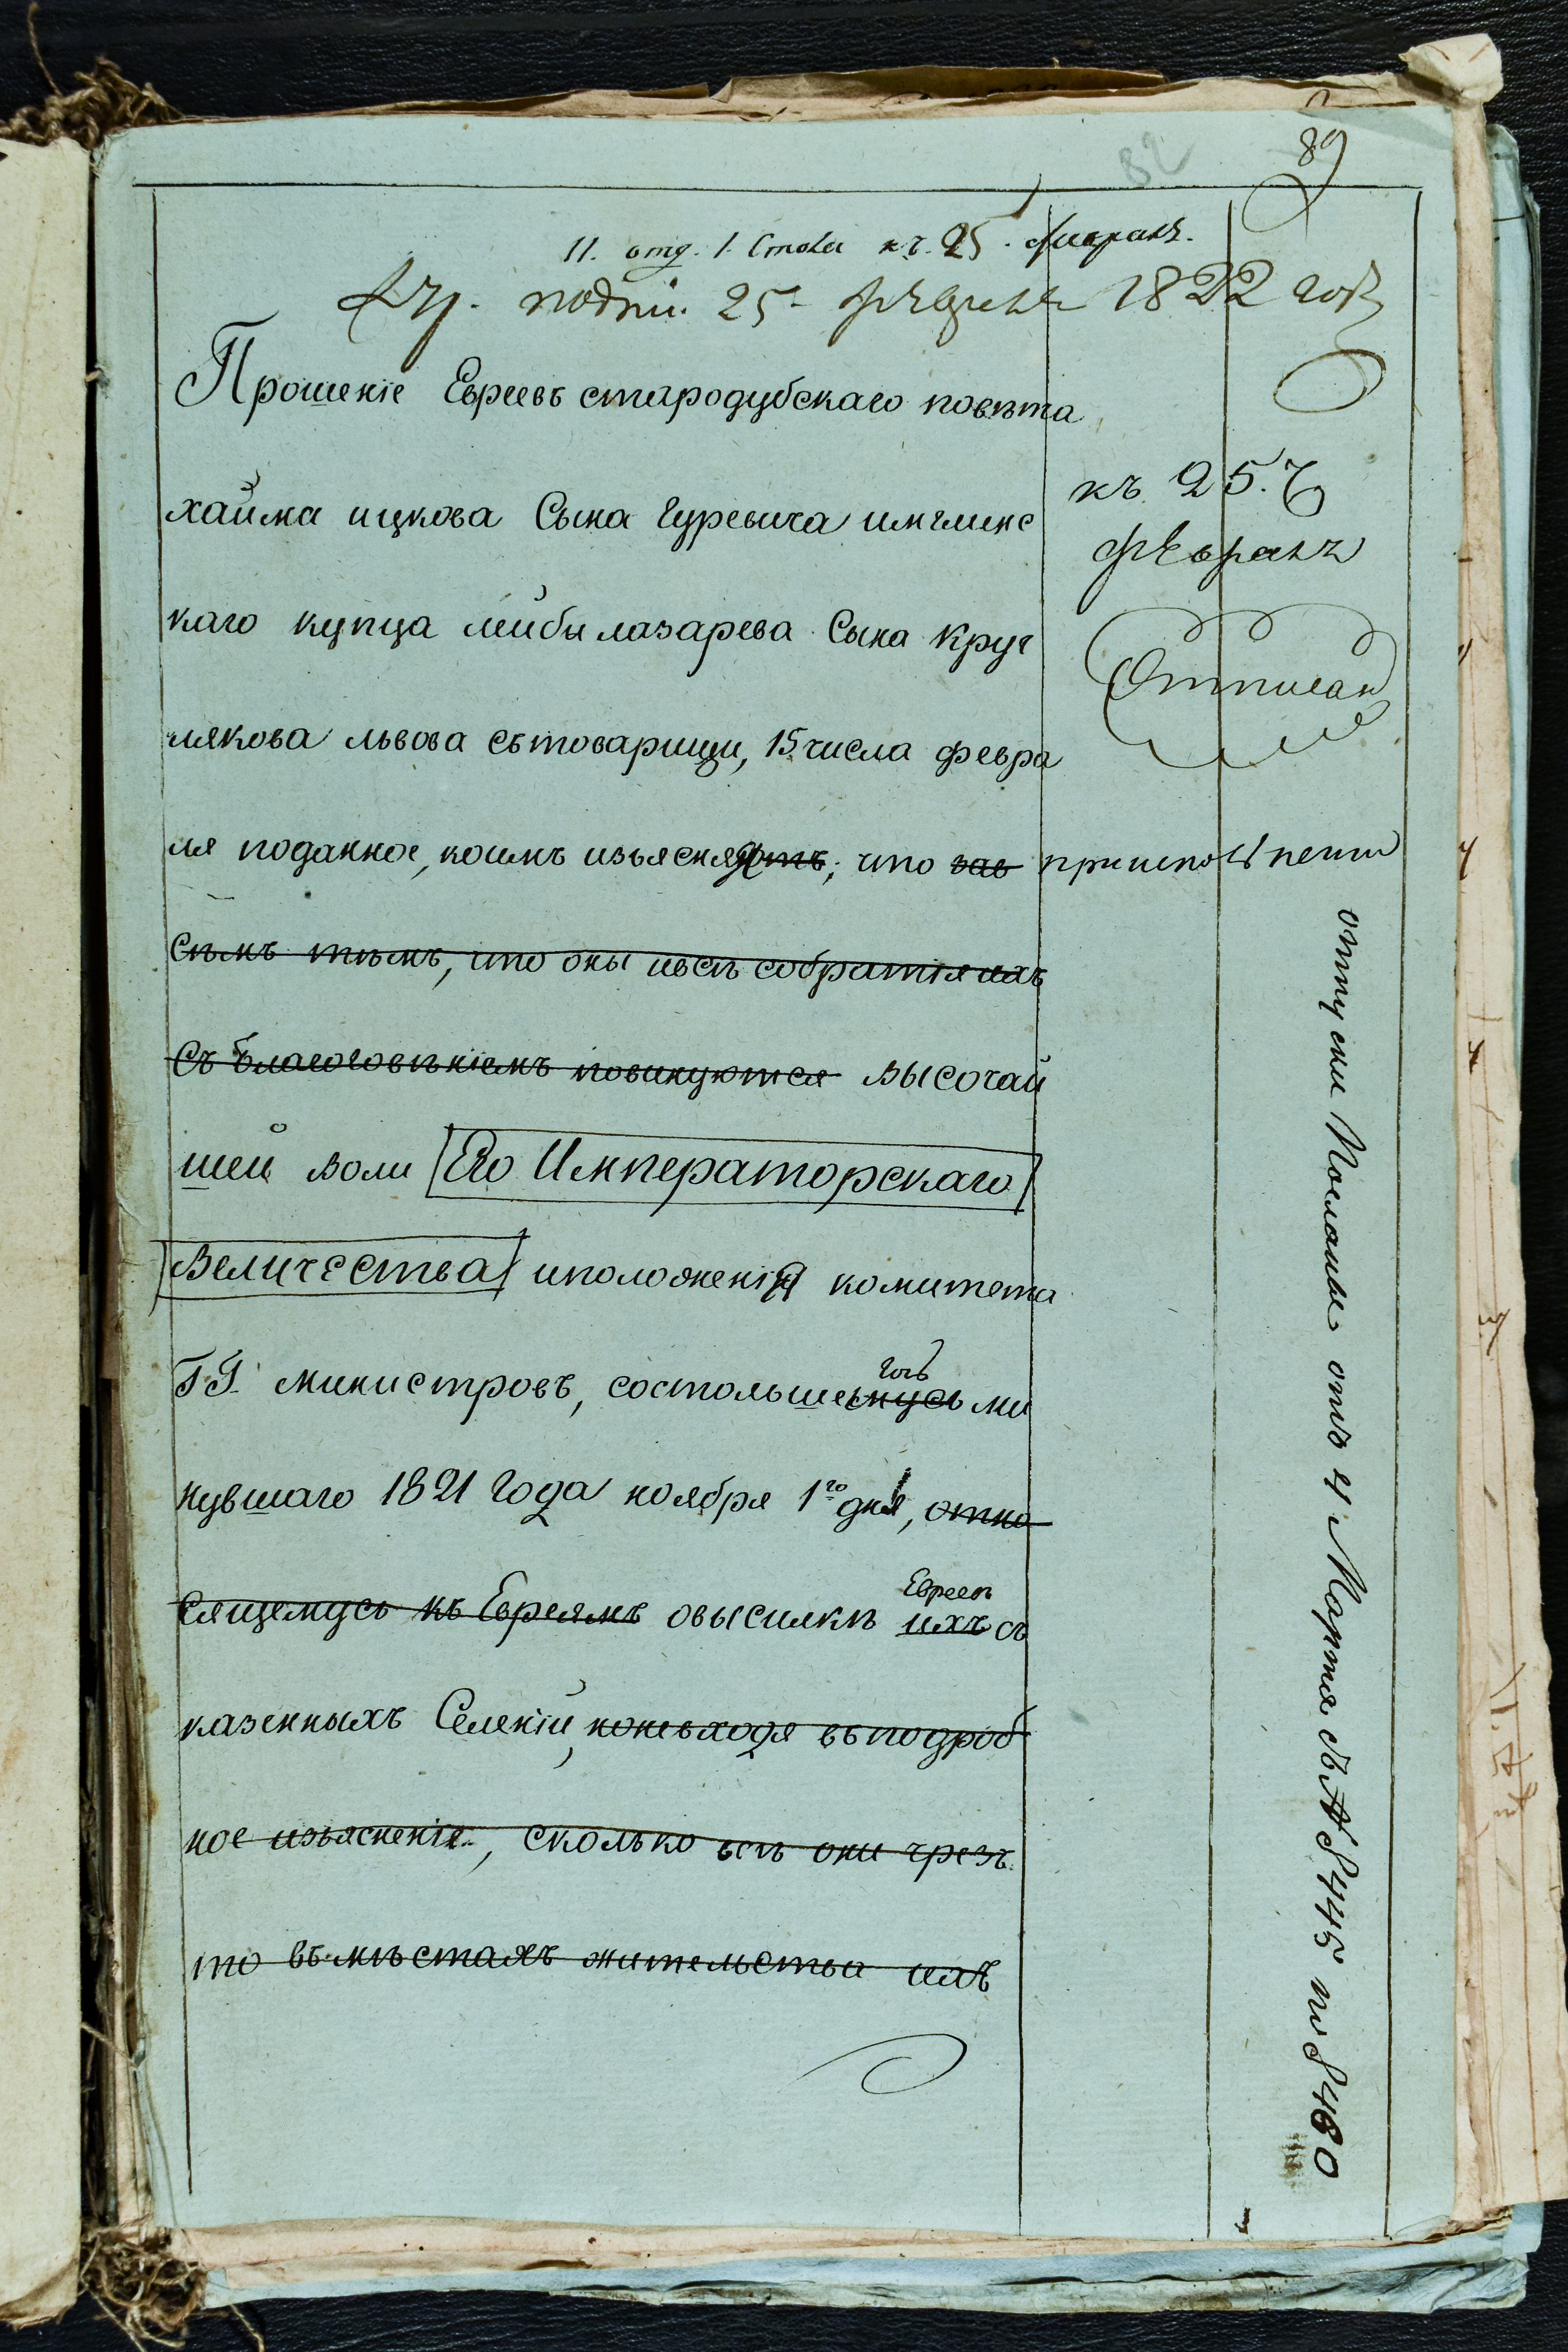 89
52
11. отд. 1. Стола къ. 25. Февраля.
подпи. 25 февраля 1822 года
Прошеніе Евреевъ стародубскаго повѣта
хайма ицкова Сына Гуревича имглинс
каго купца лейбы лазарева Сына Круг
лякова львова сътоварищи, 15 числа февра
ля поданное, коимъ изъясняютъ, что зав
симъ тѣмъ, что оны ивсѣ собратія ихъ
Съ благоговѣніемъ повинуются высочай
шей воли Его Императорскаго
Величества иположенія комитета
ГГ. министровъ, состоявшемусь ми
гось
нувшаго 1821 Года ноября 1го дня, отно
сящемусь къ Евреямъ овысилкѣ ихъ съ
Евреевъ
казенныхъ Селеній, неневходя въподроб
ное изъясненіе, сколько всѣ они чрезъ
то въмѣстахъ жительства ихъ
къ 25. Ч
февраля
Отписан
при исполнении
отпуски Посланы отъ 4 Марта № 8445 и 8480